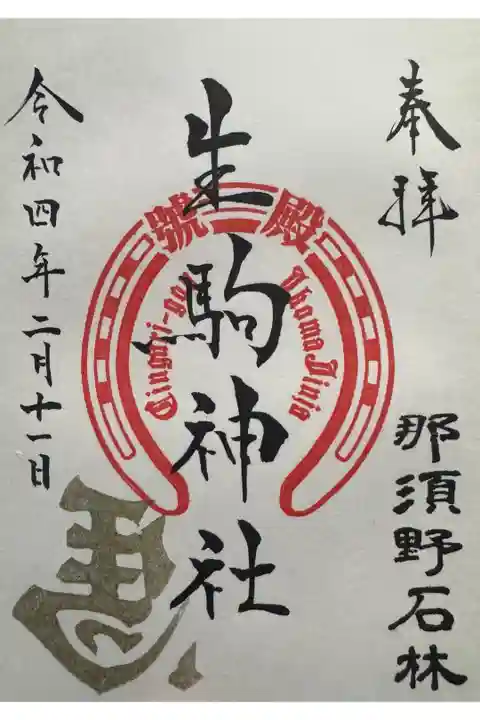 奉拝
那須野石林
生駒神社
殿一號
Ikoma Jinja
令和四年二月十一日
馬